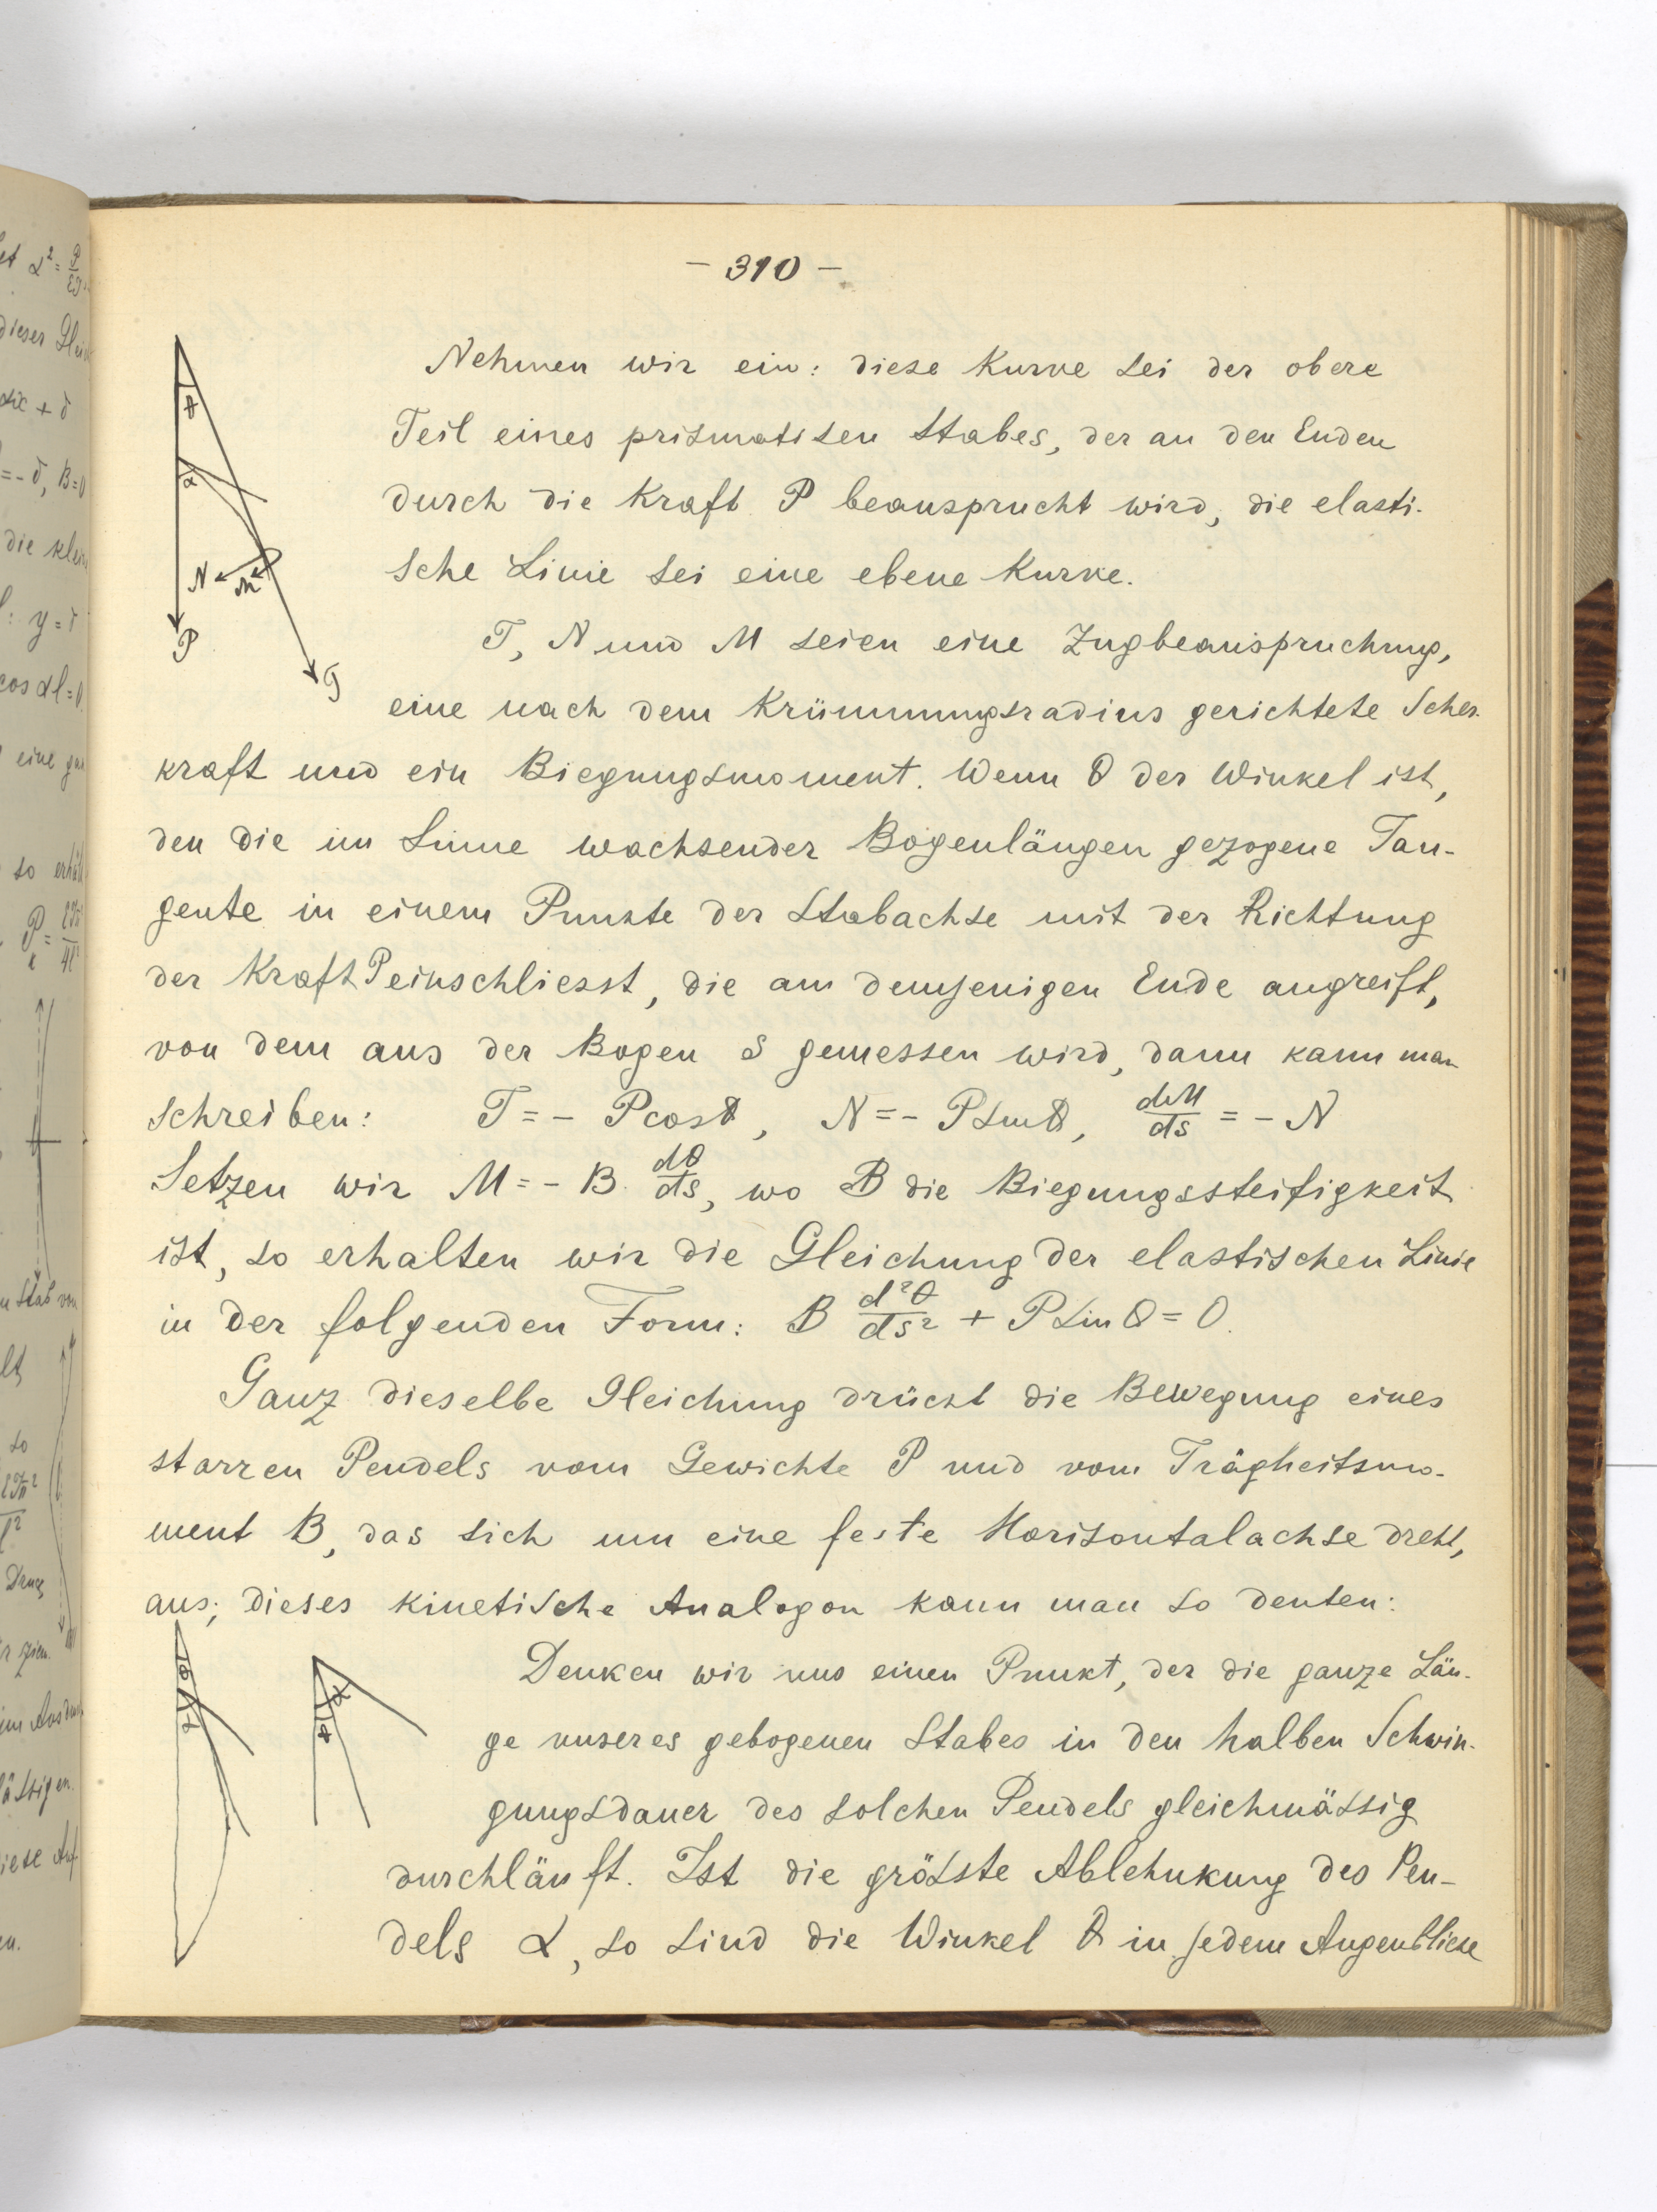 - 310 -
Nehmen wir ein: diese Kurve sei der obere
Teil eines prismatisen Stabes, der an den Enden
durch die Kraft P beansprucht wird, die elasti-
sche Linie sei eine ebene Kurve.
T, N und M seien eine Zugbeanspruchung,
eine nach dem Krümmungsradius gerichtete Scher-
kraft und ein Biegungsmoment. Wenn θ der Winkel ist,
den die im Sinne wachsender Bogenlängen gezogene Tan-
gente in einem Punkte der Stabachse mit der Richtung
der Kraft P einschliesst, die am demjenigen Ende angreift,
von dem aus der Bogen s gemessen wird, dann kann man
schreiben: T = - P cos θ, N = - P sin θ, dM/ds = - N
Setzen wir M = - B. dθ/ds, wo B die Biegungssteifigkeit
ist, so erhalten wir die Gleichung der elastischen Linie
in der folgenden Form: B d²θ/ds² + P sin θ = 0.
Ganz dieselbe Gleichung drückt die Bewegung eines
starren Pendels vom Gewichte P und vom Trägheitsmo-
ment B, das sich um eine feste Horisontalachse dreht,
aus; dieses kinetische Analogon kann man so deuten:
Denken wir uns einen Punkt, der die ganze Län-
ge unseres gebogenen Stabes in den halben Schwin-
gungsdauer des solchen Pendels gleichmässig
durchläuft. Ist die grösste Ablehnkung des Pen-
dels α, so sind die Winkel θ in jedem Augenblicke
θ
α
N
m
P
T
θ
α
α
θ